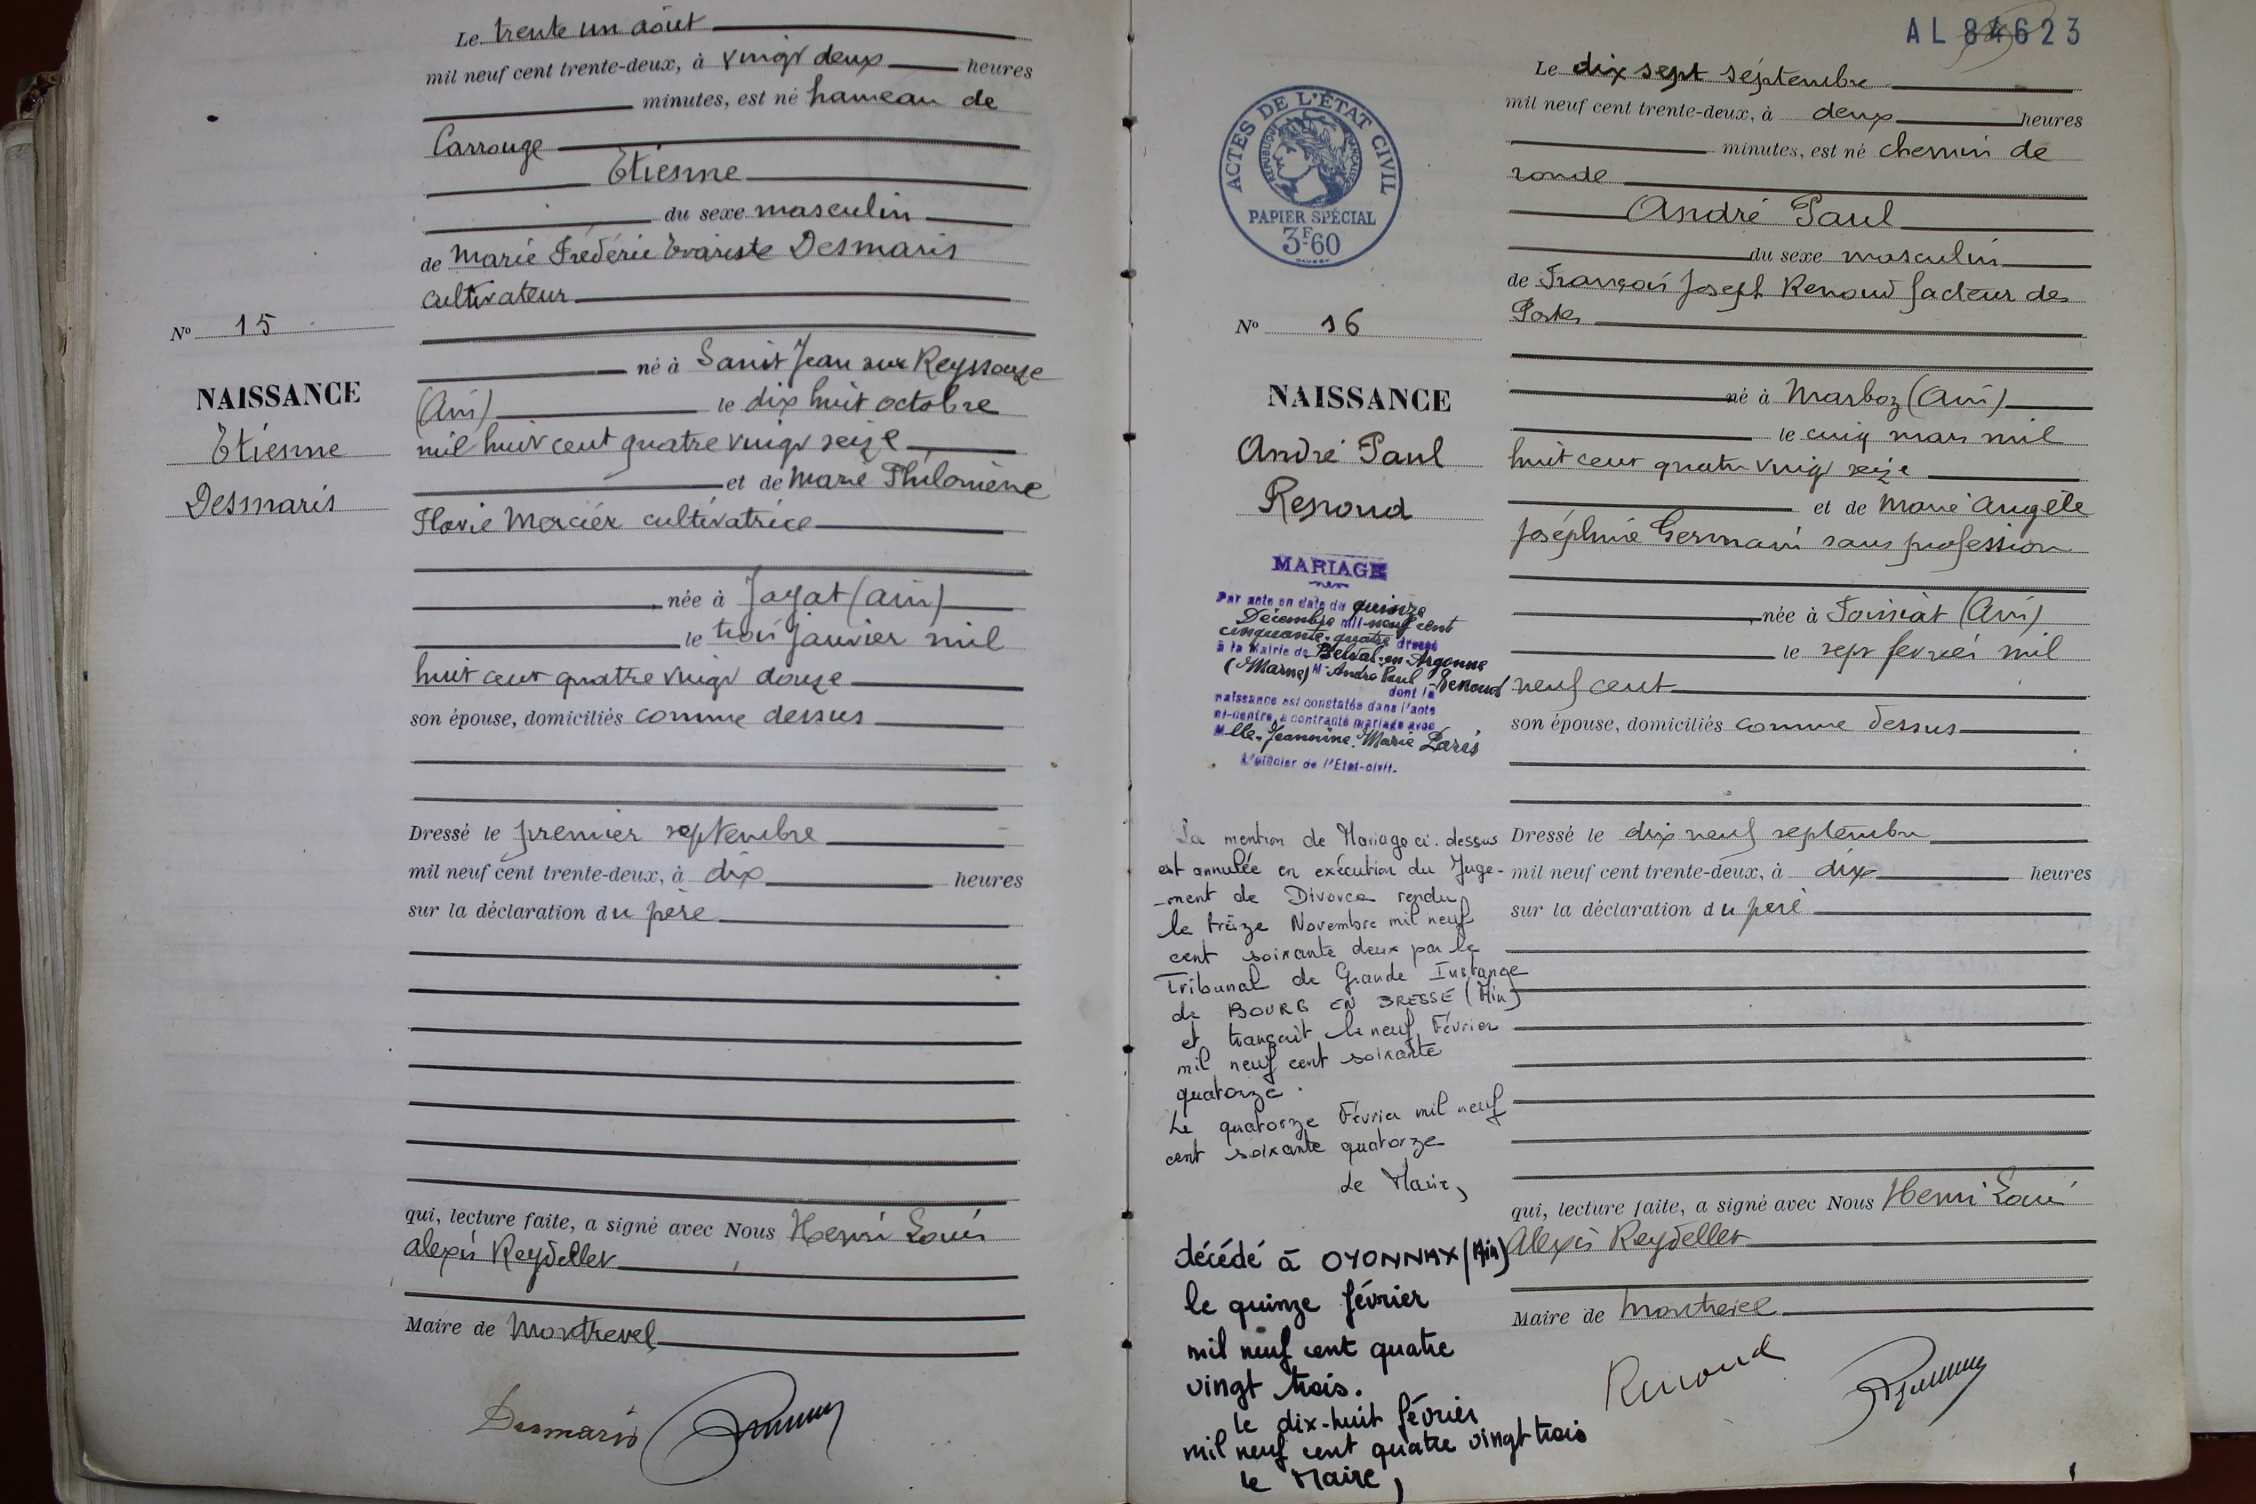 Le trente un août
mil neuf cent trente-deux, à vingt deux heures
minutes, est né hameau de
Carrouge
Etienne
du sexe masculin
de Marie Frédéric Evariste Desmaris
cultivateur
né à Saint Jean sur Reyssouze
(Ain) le dix huit octobre
mil huit cent quatre vingt seize
et de Marie Philomène
Flavie Mercier cultivatrice
née à Jayat (Ain)
le trois janvier mil
huit cent quatre vingt douze
son épouse, domiciliés comme dessus
Dressé le premier septembre
mil neuf cent trente-deux, à dix heures
sur la déclaration du père
qui, lecture faite, a signé avec Nous Henri Louis
Alexis Reydellet
Maire de Montrevel
Desmaris
No 15
NAISSANCE
Etienne
Desmaris
AL 84623
ACTES DE L'ÉTAT CIVIL
RÉPUBLIQUE FRANÇAISE
PAPIER SPÉCIAL
3F60
No 16
NAISSANCE
André Paul
Renoud
MARIAGE
Par acte en date du quinze
Décembre mil-neuf cent
cinquante-quatre dressé
à la Mairie de Belval-en-Argonne
(Marne) M. André Paul Renoud
dont la
naissance est constatée dans l'acte
ci-contre, a contracté mariage avec
Mlle Jeannine Marie Larès
L'officier de l'Etat-civil.
La mention de Mariage ci-dessus
est annulée en exécution du Juge-
-ment de Divorce rendu
le treize Novembre mil neuf
cent soixante deux par le
Tribunal de Grande Instance
de BOURG EN BRESSE (Ain)
et transcrit le neuf Février
mil neuf cent soixante
quatorze.
Le quatorze Février mil neuf
cent soixante quatorze
Le Maire,
décédé à OYONNAX (Ain)
le quinze février
mil neuf cent quatre
vingt trois.
le dix-huit février
mil neuf cent quatre vingt trois
le Maire,
Le dix sept septembre
mil neuf cent trente-deux, à deux heures
minutes, est né chemin de
ronde
André Paul
du sexe masculin
de François Joseph Renoud facteur des
Postes
né à Marboz (Ain)
le cinq mars mil
huit cent quatre vingt seize
et de Marie Angèle
Joséphine Germain sans profession
née à Foissiat (Ain)
le sept février mil
neuf cent
son épouse, domiciliés comme dessus
Dressé le dix neuf septembre
mil neuf cent trente-deux, à dix heures
sur la déclaration du père
qui, lecture faite, a signé avec Nous Henri Louis
Alexis Reydellet
Maire de Montrevel
Renoud